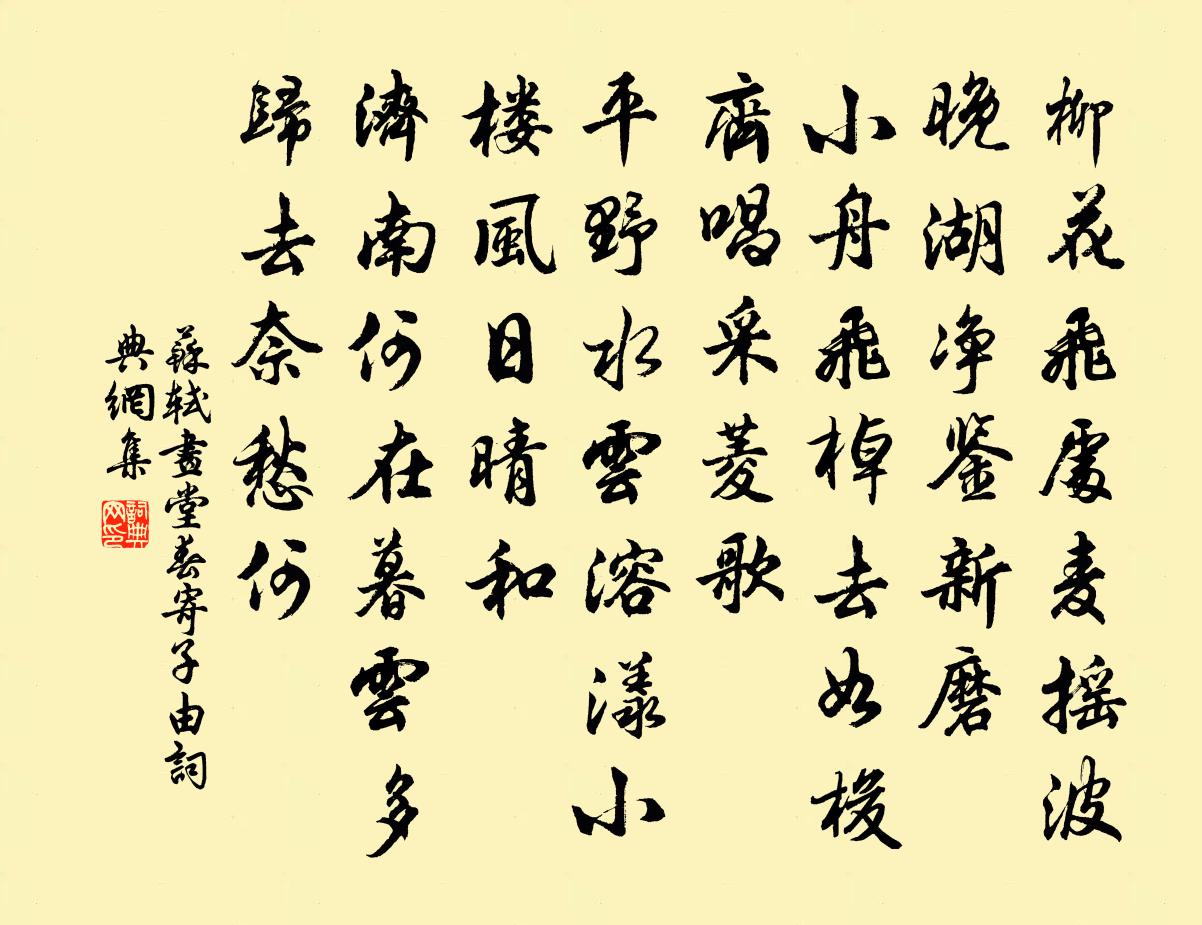 柳花飛處麦摇波
晚湖净鉴新磨
小舟飛棹去如梭
齊唱采菱歌
平野水雲溶漾小
楼風日晴和
濟南何在暮雲多
歸去奈愁何
蘇軾畫堂春寄子由詞
典網集
詞典
网印